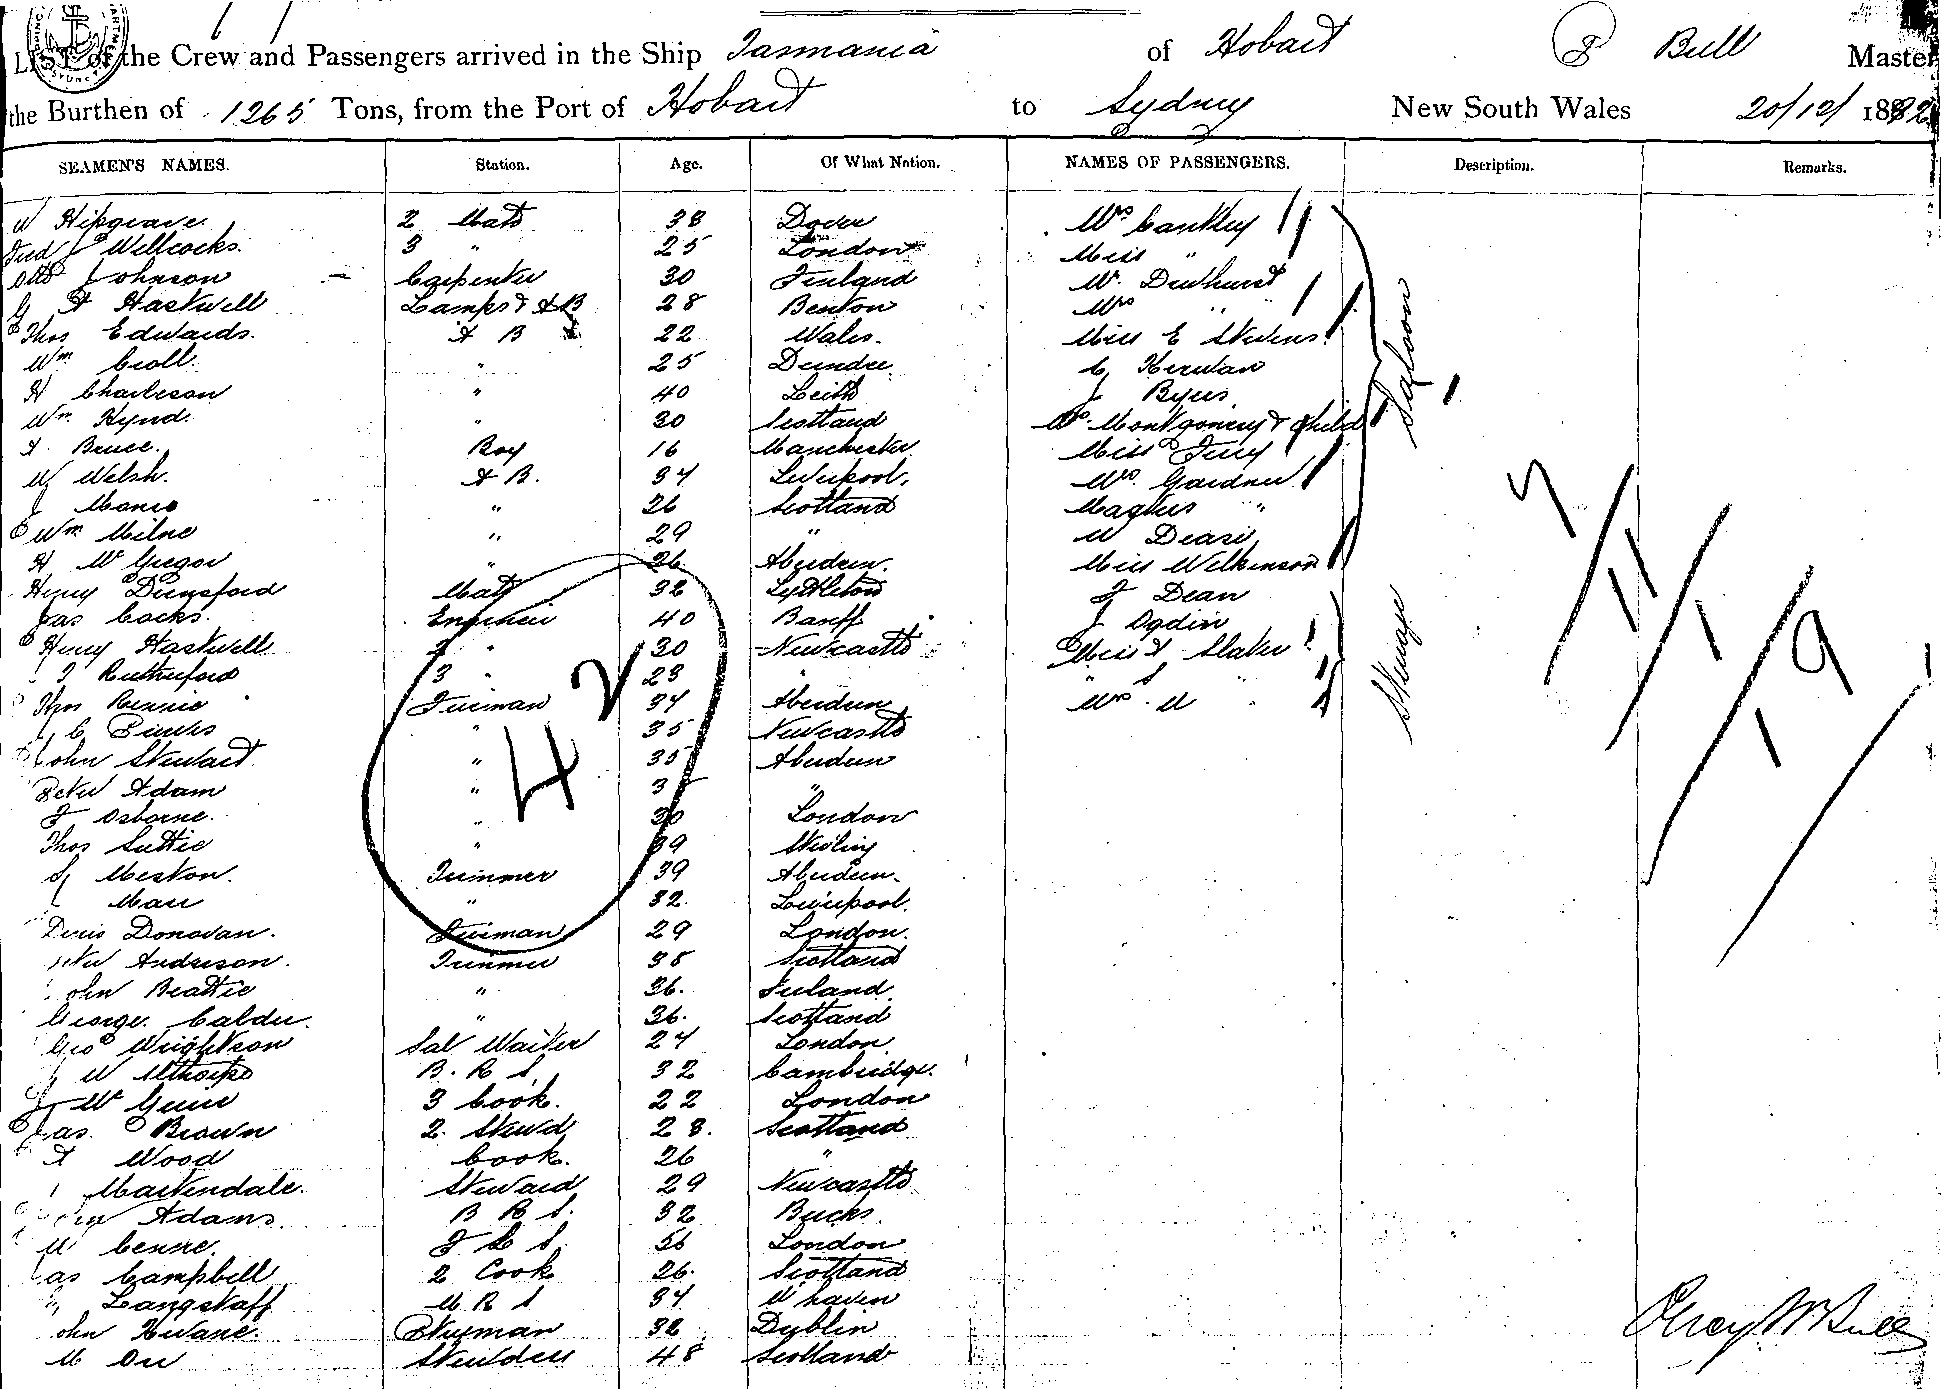 LIST of the Crew and Passengers arrived in the Ship Tasmania of Hobart Bull Master
the Burthen of 1265 Tons, from the Port of Hobart to Sydney New South Wales 20/12/1892
SEAMEN'S NAMES. Station. Age. Of What Nation. NAMES OF PASSENGERS. Description. Remarks.
W Hipgrave 2 Mate 38 Dover Mrs Cankley
Fred J Willcocks. 3 " 25 London Miss "
Otto Johnson Carpenter 30 Finland W. Dewhurst
G A Haskwell Lamps & AB 28 Benton Mrs "
Thos Edwards. A B 22 Wales. Miss E Stevens
Wm Croll. " 25 Dundee C Kerwan
H Charleson " 40 Leith J Byers
Wm Hynd. " 30 Scotland Mrs Montgomery & Child
A Bruce. Boy 16 Manchester Miss
W Welsh. A B. 34 Liverpool. Mrs Gardner
J " 26 Scotland Magnus "
Wm Milne " 29 " W
H McGregor " 26 Aberdeen. Miss Wilkinson
Saloon
Henry Dunsford Mate 32 Lyttleton J Dean
Jas Cocks. Engineer 40 Banff J Ogdin
Henry Haskwell 2 " 30 Newcastle Miss A Slater
J Rutherford 3 " 23 " " S "
Thos Rennie Fireman 34 Aberdeen Mrs M "
Steerage
J C " 35 Newcastle
John Stewart " 35 Aberdeen
Peter Adam " "
J Osborne. " 30 London
Thos Suttie " 39 Stirling
Meston. Trimmer 39 Aberdeen.
Marr " 32. Liverpool.
42
Denis Donovan. Fireman 29 London.
Peter Anderson. Trimmer 38 Scotland
John Beattie " 36. Ireland
George Calder. " 36. Scotland
Geo Wrightson Sal Waiter 24 London
W B. R S. 32 Cambridge.
W 3 Cook. 22 London
Jas. Brown 2. Stewd 28. Scotland
A Wood Cook. 26 "
Martindale. Steward 29 Newcastle
Adams. B R S. 32 Bucks
W 56 London
Jas Campbell 2 Cook 26. Scotland
Langstaff M R S 34 W haven
John Kwane. 32 Dublin
M Orr Stewdess 48 Scotland
7/11/11/19/1